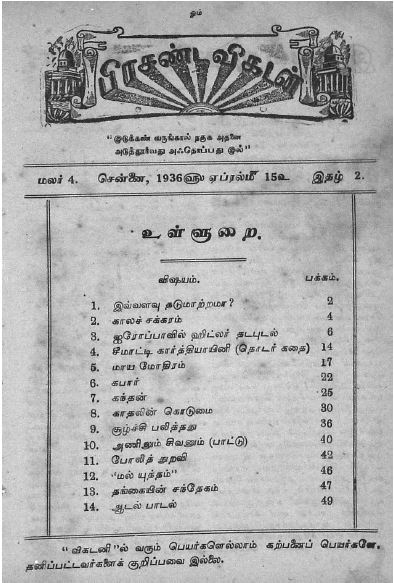 ஓம்
பிரசண்ட விகடன்
"இடுக்கண் வருங்கால் நகுக அதனை
அடுத்தூர்வது அஃதொப்பது இல்"
மலர் 4. சென்னை, 1936௵ ஏப்ரல்௴ 15௳ இதழ் 2.
உள்ளுறை.
விஷயம். பக்கம்.
1. இவ்வளவு தடுமாற்றமா? 2
2. காலச் சக்கரம் 4
3. ஐரோப்பாவில் ஹிட்லர் தடபுடல் 6
4. சீமாட்டி கார்த்தியாயினி (தொடர் கதை) 14
5. மாய மோதிரம் 17
6. கபார் 22
7. கந்தன் 25
8. காதலின் கொடுமை 30
9. சூழ்ச்சி பலித்தது 36
10. அணிலும் சிவனும் (பாட்டு) 40
11. போலித் துறவி 42
12. "மல் யுத்தம்" 46
13. தங்கையின் சந்தேகம் 47
14. ஆடல் பாடல் 49
"விகடனி"ல் வரும் பெயர்களெல்லாம் கற்பனைப் பெயர்களே.
தனிப்பட்டவர்களைக் குறிப்பவை இல்லை.